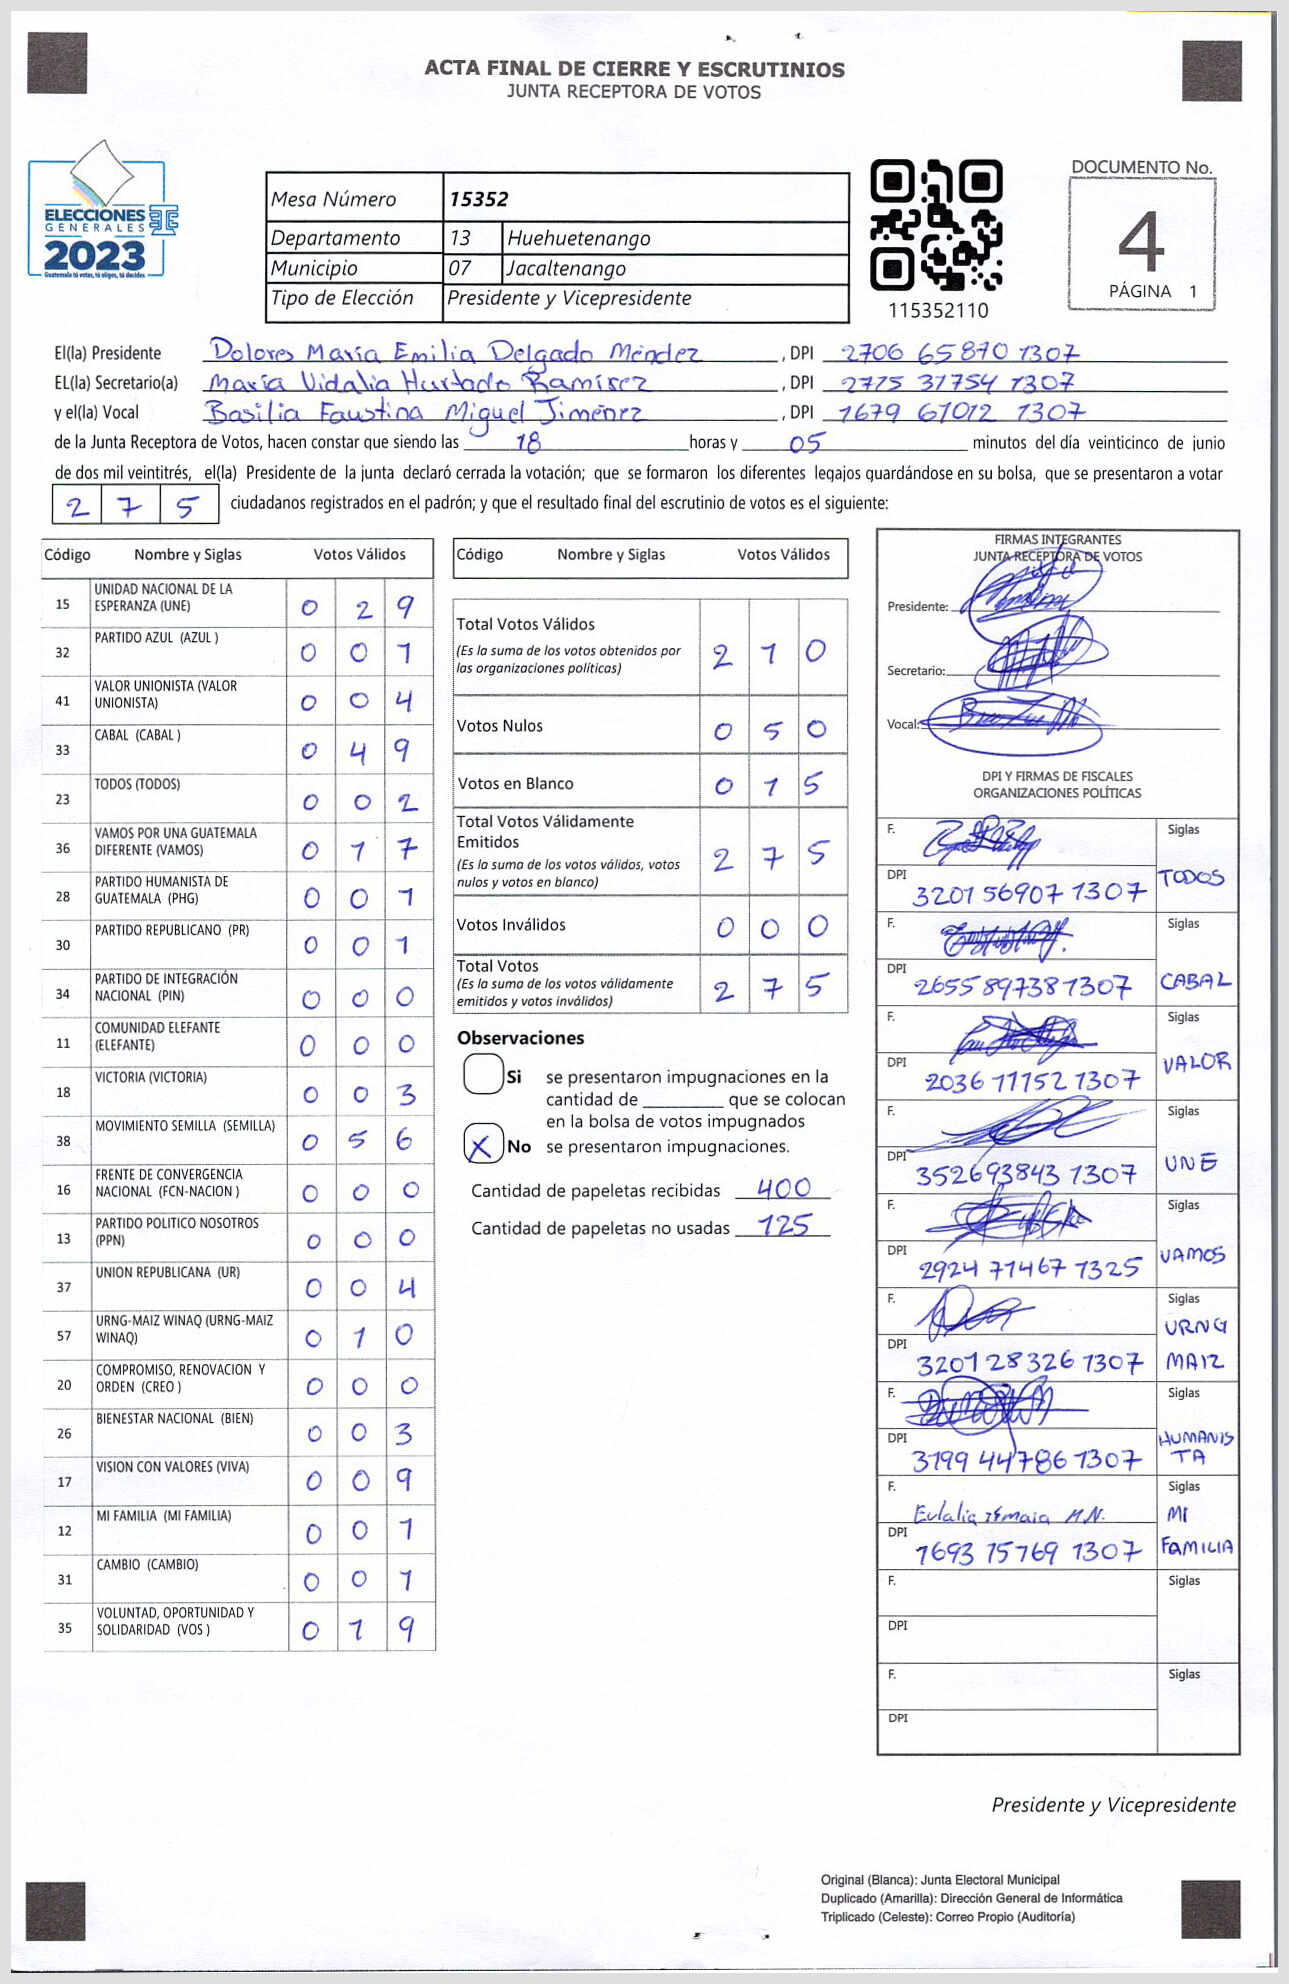 ACTA FINAL DE CIERRE Y ESCRUTINIOS
JUNTA RECEPTORA DE VOTOS
ELECCIONES
GENERALES
2023
Guatemala tú votas, tú eliges, tú decides
Mesa Número 15352
Departamento 13 Huehuetenango
Municipio 07 Jacaltenango
Tipo de Elección Presidente y Vicepresidente
115352110
DOCUMENTO No.
4
PÁGINA 1
El(la) Presidente Dolores María Emilia Delgado Méndez , DPI 2706 65870 1307
EL(la) Secretario(a) María Vidalia Hurtado Ramírez , DPI 2775 31754 1307
y el(la) Vocal Basilia Faustina Miguel Jiménez , DPI 1679 61012 1307
de la Junta Receptora de Votos, hacen constar que siendo las 18 horas y 05 minutos del día veinticinco de junio
de dos mil veintitrés, el(la) Presidente de la junta declaró cerrada la votación; que se formaron los diferentes legajos guardándose en su bolsa, que se presentaron a votar
2 7 5 ciudadanos registrados en el padrón; y que el resultado final del escrutinio de votos es el siguiente:
Código Nombre y Siglas Votos Válidos
15 UNIDAD NACIONAL DE LA
ESPERANZA (UNE) 0 2 9
32 PARTIDO AZUL (AZUL ) 0 0 1
41 VALOR UNIONISTA (VALOR
UNIONISTA) 0 0 4
33 CABAL (CABAL ) 0 4 9
23 TODOS (TODOS) 0 0 2
36 VAMOS POR UNA GUATEMALA
DIFERENTE (VAMOS) 0 1 7
28 PARTIDO HUMANISTA DE
GUATEMALA (PHG) 0 0 1
30 PARTIDO REPUBLICANO (PR) 0 0 1
34 PARTIDO DE INTEGRACIÓN
NACIONAL (PIN) 0 0 0
11 COMUNIDAD ELEFANTE
(ELEFANTE) 0 0 0
18 VICTORIA (VICTORIA) 0 0 3
38 MOVIMIENTO SEMILLA (SEMILLA) 0 5 6
16 FRENTE DE CONVERGENCIA
NACIONAL (FCN-NACION ) 0 0 0
13 PARTIDO POLITICO NOSOTROS
(PPN) 0 0 0
37 UNION REPUBLICANA (UR) 0 0 4
57 URNG-MAIZ WINAQ (URNG-MAIZ
WINAQ) 0 1 0
20 COMPROMISO, RENOVACION Y
ORDEN (CREO ) 0 0 0
26 BIENESTAR NACIONAL (BIEN) 0 0 3
17 VISION CON VALORES (VIVA) 0 0 9
12 MI FAMILIA (MI FAMILIA) 0 0 1
31 CAMBIO (CAMBIO) 0 0 1
35 VOLUNTAD, OPORTUNIDAD Y
SOLIDARIDAD (VOS ) 0 1 9
Código Nombre y Siglas Votos Válidos
Total Votos Válidos
(Es la suma de los votos obtenidos por
las organizaciones políticas) 2 1 0
Votos Nulos 0 5 0
Votos en Blanco 0 1 5
Total Votos Válidamente
Emitidos
(Es la suma de los votos válidos, votos
nulos y votos en blanco) 2 7 5
Votos Inválidos 0 0 0
Total Votos
(Es la suma de los votos válidamente
emitidos y votos inválidos) 2 7 5
Observaciones
Si se presentaron impugnaciones en la
cantidad de ________ que se colocan
en la bolsa de votos impugnados
X No se presentaron impugnaciones.
Cantidad de papeletas recibidas 400
Cantidad de papeletas no usadas 125
FIRMAS INTEGRANTES
JUNTA RECEPTORA DE VOTOS
Presidente:
Secretario:
Vocal:
DPI Y FIRMAS DE FISCALES
ORGANIZACIONES POLÍTICAS
F. Siglas
DPI 3201 56907 1307 TODOS
F. Siglas
DPI 2655 89738 1307 CABAL
F. Siglas
DPI 2036 11152 1307 VALOR
F. Siglas
DPI 352693843 1307 UNE
F. Siglas
DPI 2924 71467 1325 VAMOS
F. Siglas
URNG
DPI 3201 28326 1307 MAIZ
F. Siglas
HUMANIS
DPI 3199 44786 1307 TA
F. Siglas
Eulalia M.N. MI
DPI 1693 15769 1307 FAMILIA
F. Siglas
DPI
F. Siglas
DPI
Presidente y Vicepresidente
Original (Blanca): Junta Electoral Municipal
Duplicado (Amarilla): Dirección General de Informática
Triplicado (Celeste): Correo Propio (Auditoría)